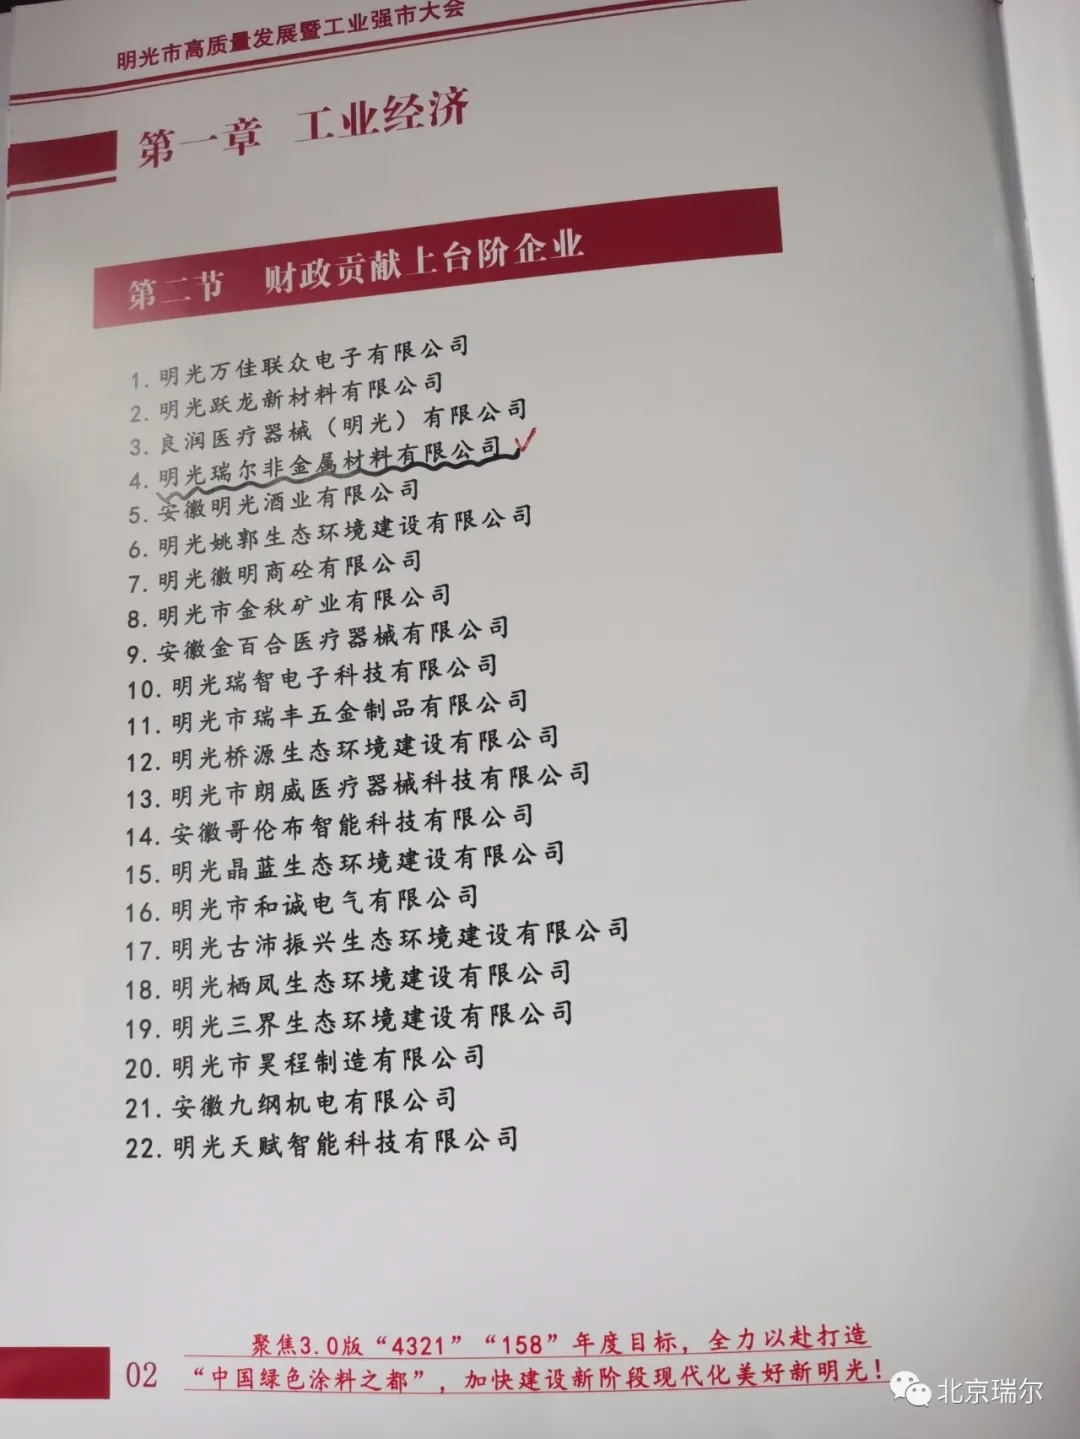 明光市高质量发展暨工业强市大会
第一章 工业经济
第二节 财政贡献上台阶企业
1.明光万佳联众电子有限公司
2.明光跃龙新材料有限公司
3.良润医疗器械（明光）有限公司
4.明光瑞尔非金属材料有限公司
5.安徽明光酒业有限公司
6.明光姚郭生态环境建设有限公司
7.明光徽明商砼有限公司
8.明光市金秋矿业有限公司
9.安徽金百合医疗器械有限公司
10.明光瑞智电子科技有限公司
11.明光市瑞丰五金制品有限公司
12.明光桥源生态环境建设有限公司
13.明光市朗威医疗器械科技有限公司
14.安徽哥伦布智能科技有限公司
15.明光晶蓝生态环境建设有限公司
16.明光市和诚电气有限公司
17.明光古沛振兴生态环境建设有限公司
18.明光栖凤生态环境建设有限公司
19.明光三界生态环境建设有限公司
20.明光市昊程制造有限公司
21.安徽九纲机电有限公司
22.明光天赋智能科技有限公司
聚焦3.0版“4321”“158”年度目标，全力以赴打造
02 “中国绿色涂料之都”，加快建设新阶段现代化美好新明光！
北京瑞尔